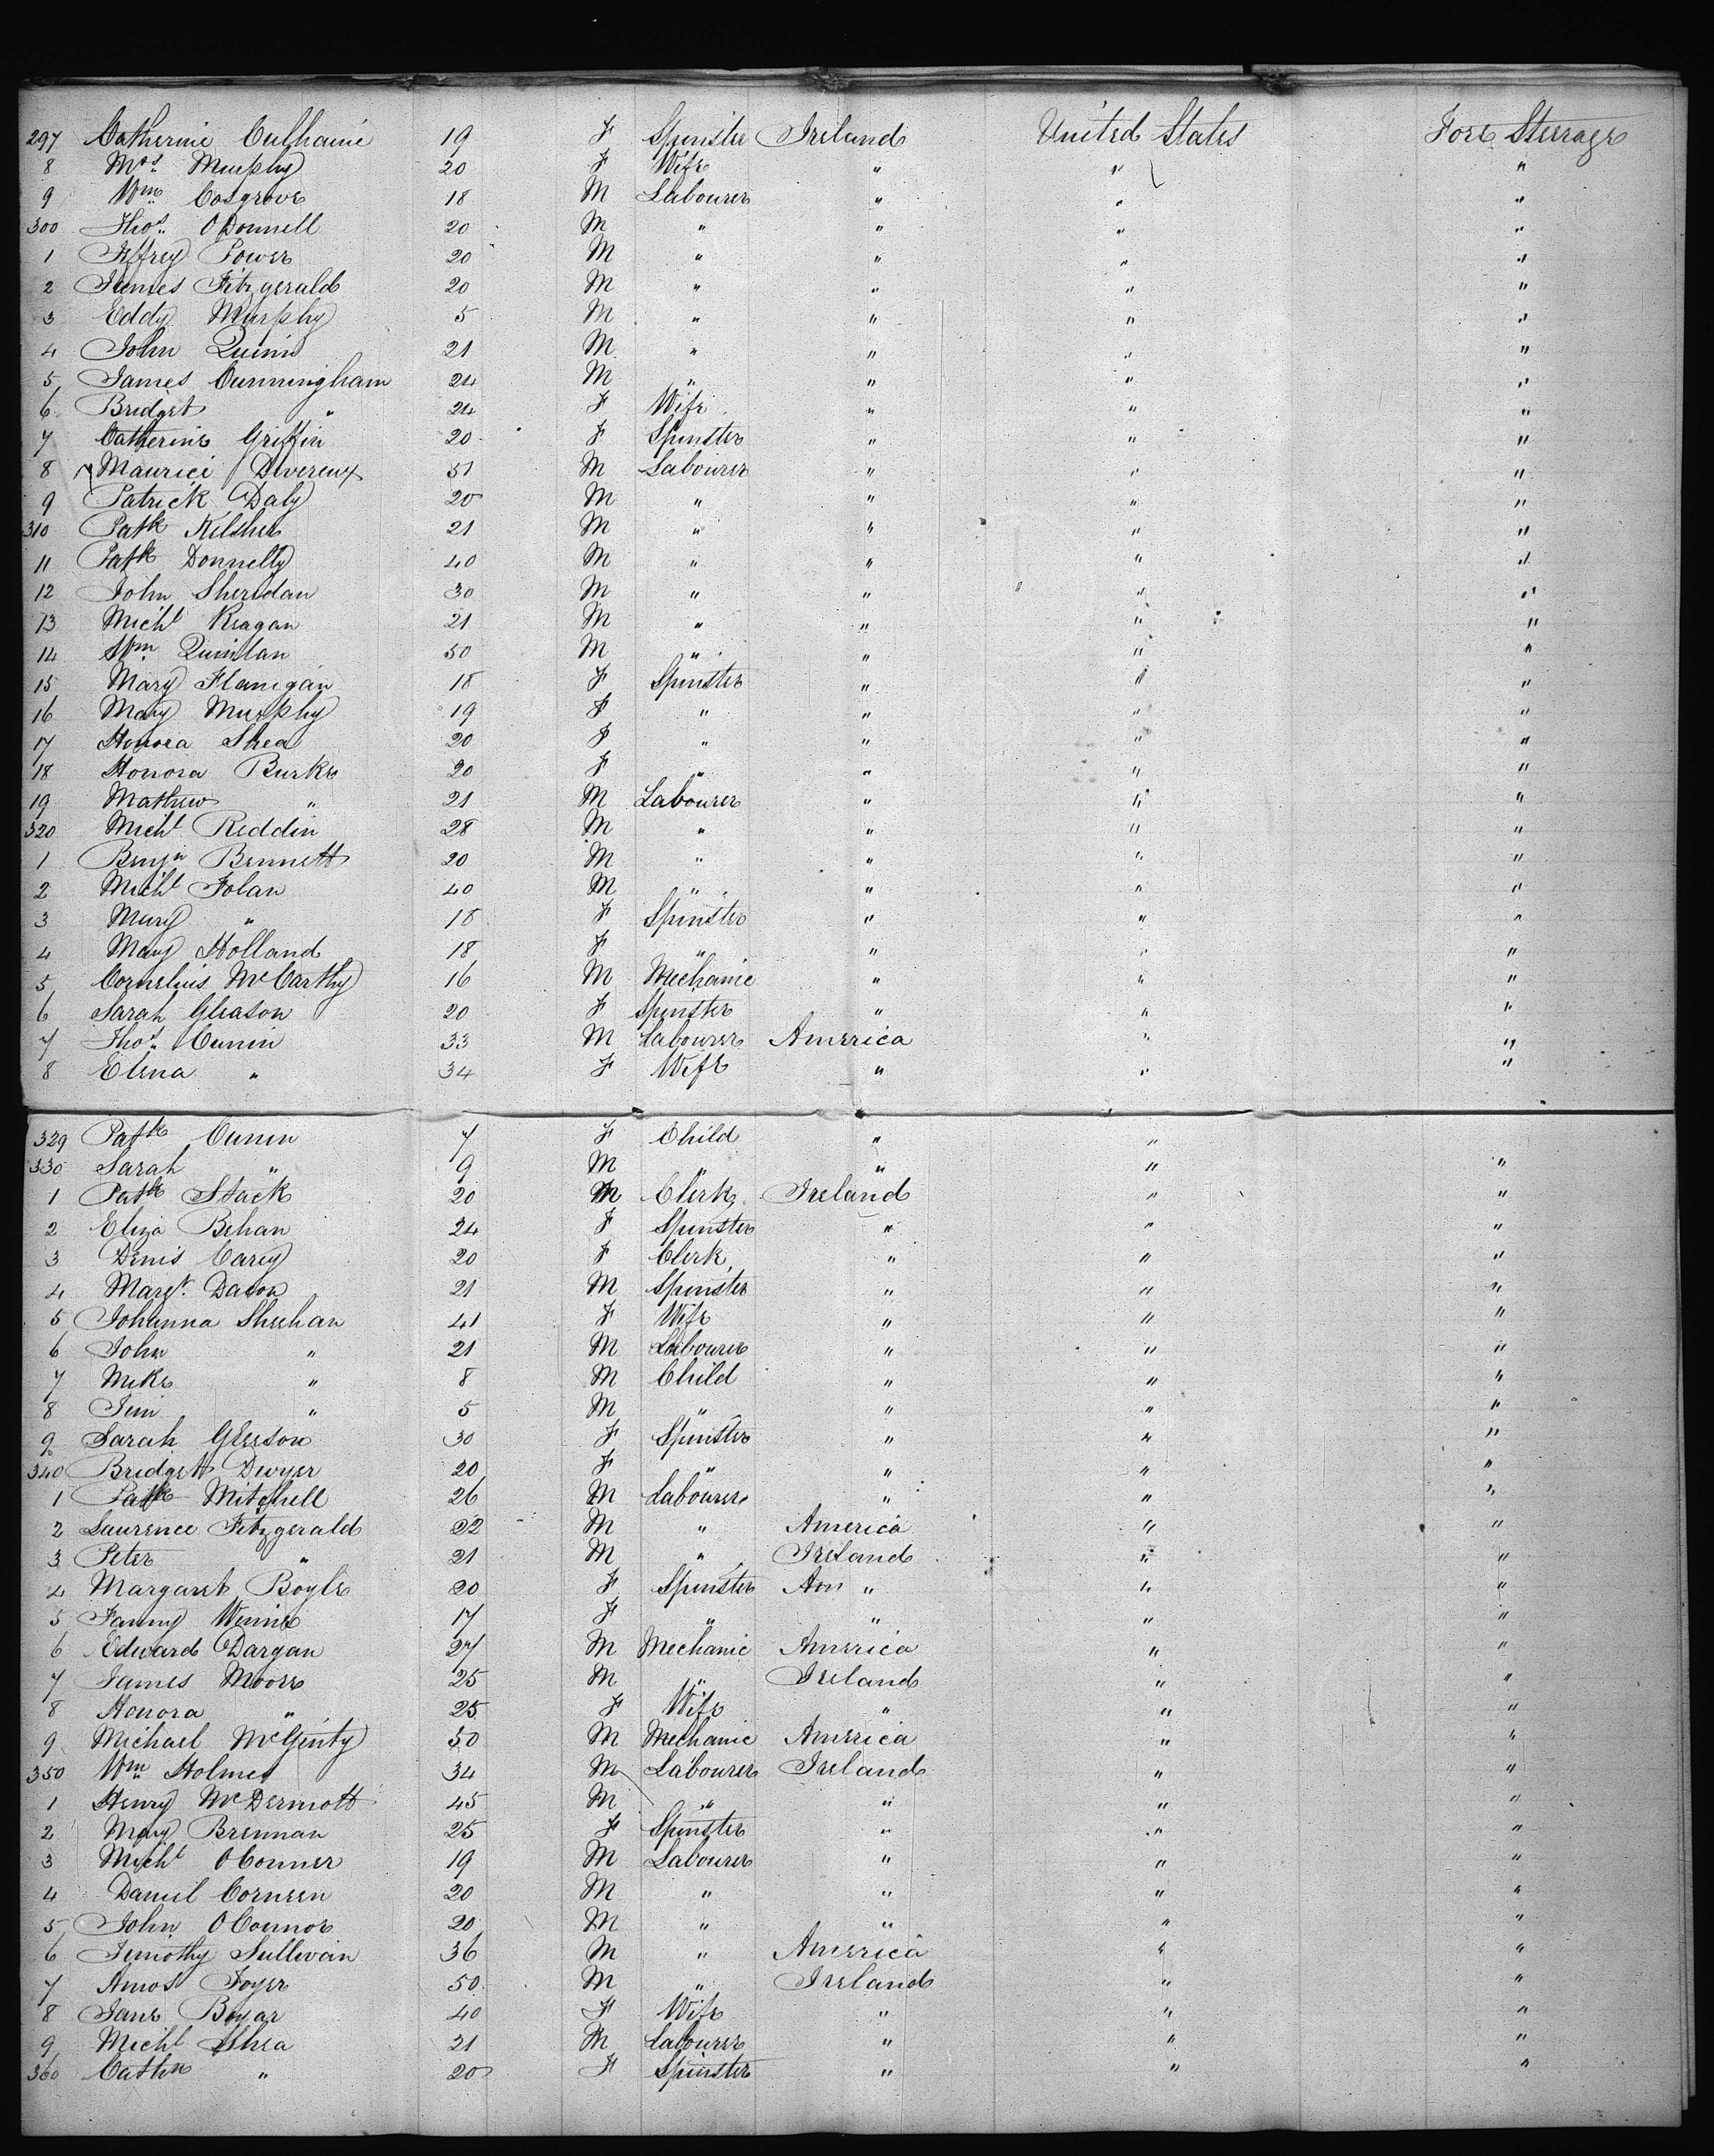 297 Catherine Culhane 19 F Spinster Ireland United States Fore Steerage
8 Mrs. Murphy 20 F Wife " " "
9 Wm. Cosgrove 18 M Labourer " " "
300 Thos. O'Donnell 20 M " " " "
1 Jeffrey Power 20 M " " " "
2 James Fitzgerald 20 M " " " "
3 Eddy Murphy 5 M " " " "
4 John Quinn 21 M " " " "
5 James Cunningham 24 M " " " "
6 Bridget " 24 F Wife " " "
7 Catherine Griffin 20 F Spinster " " "
8 Maurice Devereux 51 M Labourer " " "
9 Patrick Daly 20 M " " " "
310 Patk Kelsher 21 M " " " "
11 Patk Donnelly 40 M " " " "
12 John Sheridan 30 M " " " "
13 Michl Keagan 21 M " " " "
14 Wm Quinlan 50 M " " " "
15 Mary Flanigan 18 F Spinster " " "
16 Mary Murphy 19 F " " " "
17 Honora Shea 20 F " " " "
18 Honora Burke 20 F " " " "
19 Mathew " 21 M Labourer " " "
320 Michl Reddin 28 M " " " "
1 Benjn Bennett 20 M " " " "
2 Michl Folan 40 M " " " "
3 Mary " 18 F Spinster " " "
4 Mary Holland 18 F " " " "
5 Cornelius McCarthy 16 M Mechanic " " "
6 Sarah Gleason 20 F Spinster " " "
7 Thos. Cunin 33 M Labourer America " "
8 Elena " 34 F Wife " " "
329 Patk Cunin 7 F Child " "
330 Sarah " 9 M " " " "
1 Patk Stack 20 M Clerk Ireland " "
2 Eliza Behan 24 F Spinster " " "
3 Denis Carey 20 F Clerk " " "
4 Margt. 21 M Spinster " " "
5 Johanna Sheehan 41 F Wife " " "
6 John " 21 M Labourer " " "
7 Mike " 8 M Child " " "
8 Jim " 5 M " " " "
9 Sarah Gleeson 30 F Spinster " " "
340 Bridget Dwyer 20 F " " " "
1 Patk Mitchell 26 M Labourer " " "
2 Laurence Fitzgerald 22 M " America " "
3 Peter " 21 M " Ireland " "
4 Margaret Boyle 20 F Spinster Am " " "
5 Fanny 17 F " " " "
6 Edward Dargan 27 M Mechanic America " "
7 James Moore 25 M " Ireland " "
8 Honora " 25 F Wife " " "
9 Michael McGinty 50 M Mechanic America " "
350 Wm Holmes 34 M Labourer Ireland " "
1 Henry McDermott 45 M " " " "
2 Mary Brennan 25 F Spinster " " "
3 Michl OConner 19 M Labourer " " "
4 Daniel Corneen 20 M " " " "
5 John OConnor 20 M " " " "
6 Timothy Sullivan 36 M " America " "
7 Amos Foyer 50 M " Ireland " "
8 Jane 40 F Wife " " "
9 Michl Shea 21 M Labourer " " "
360 Cathn " 20 F Spinster " " "